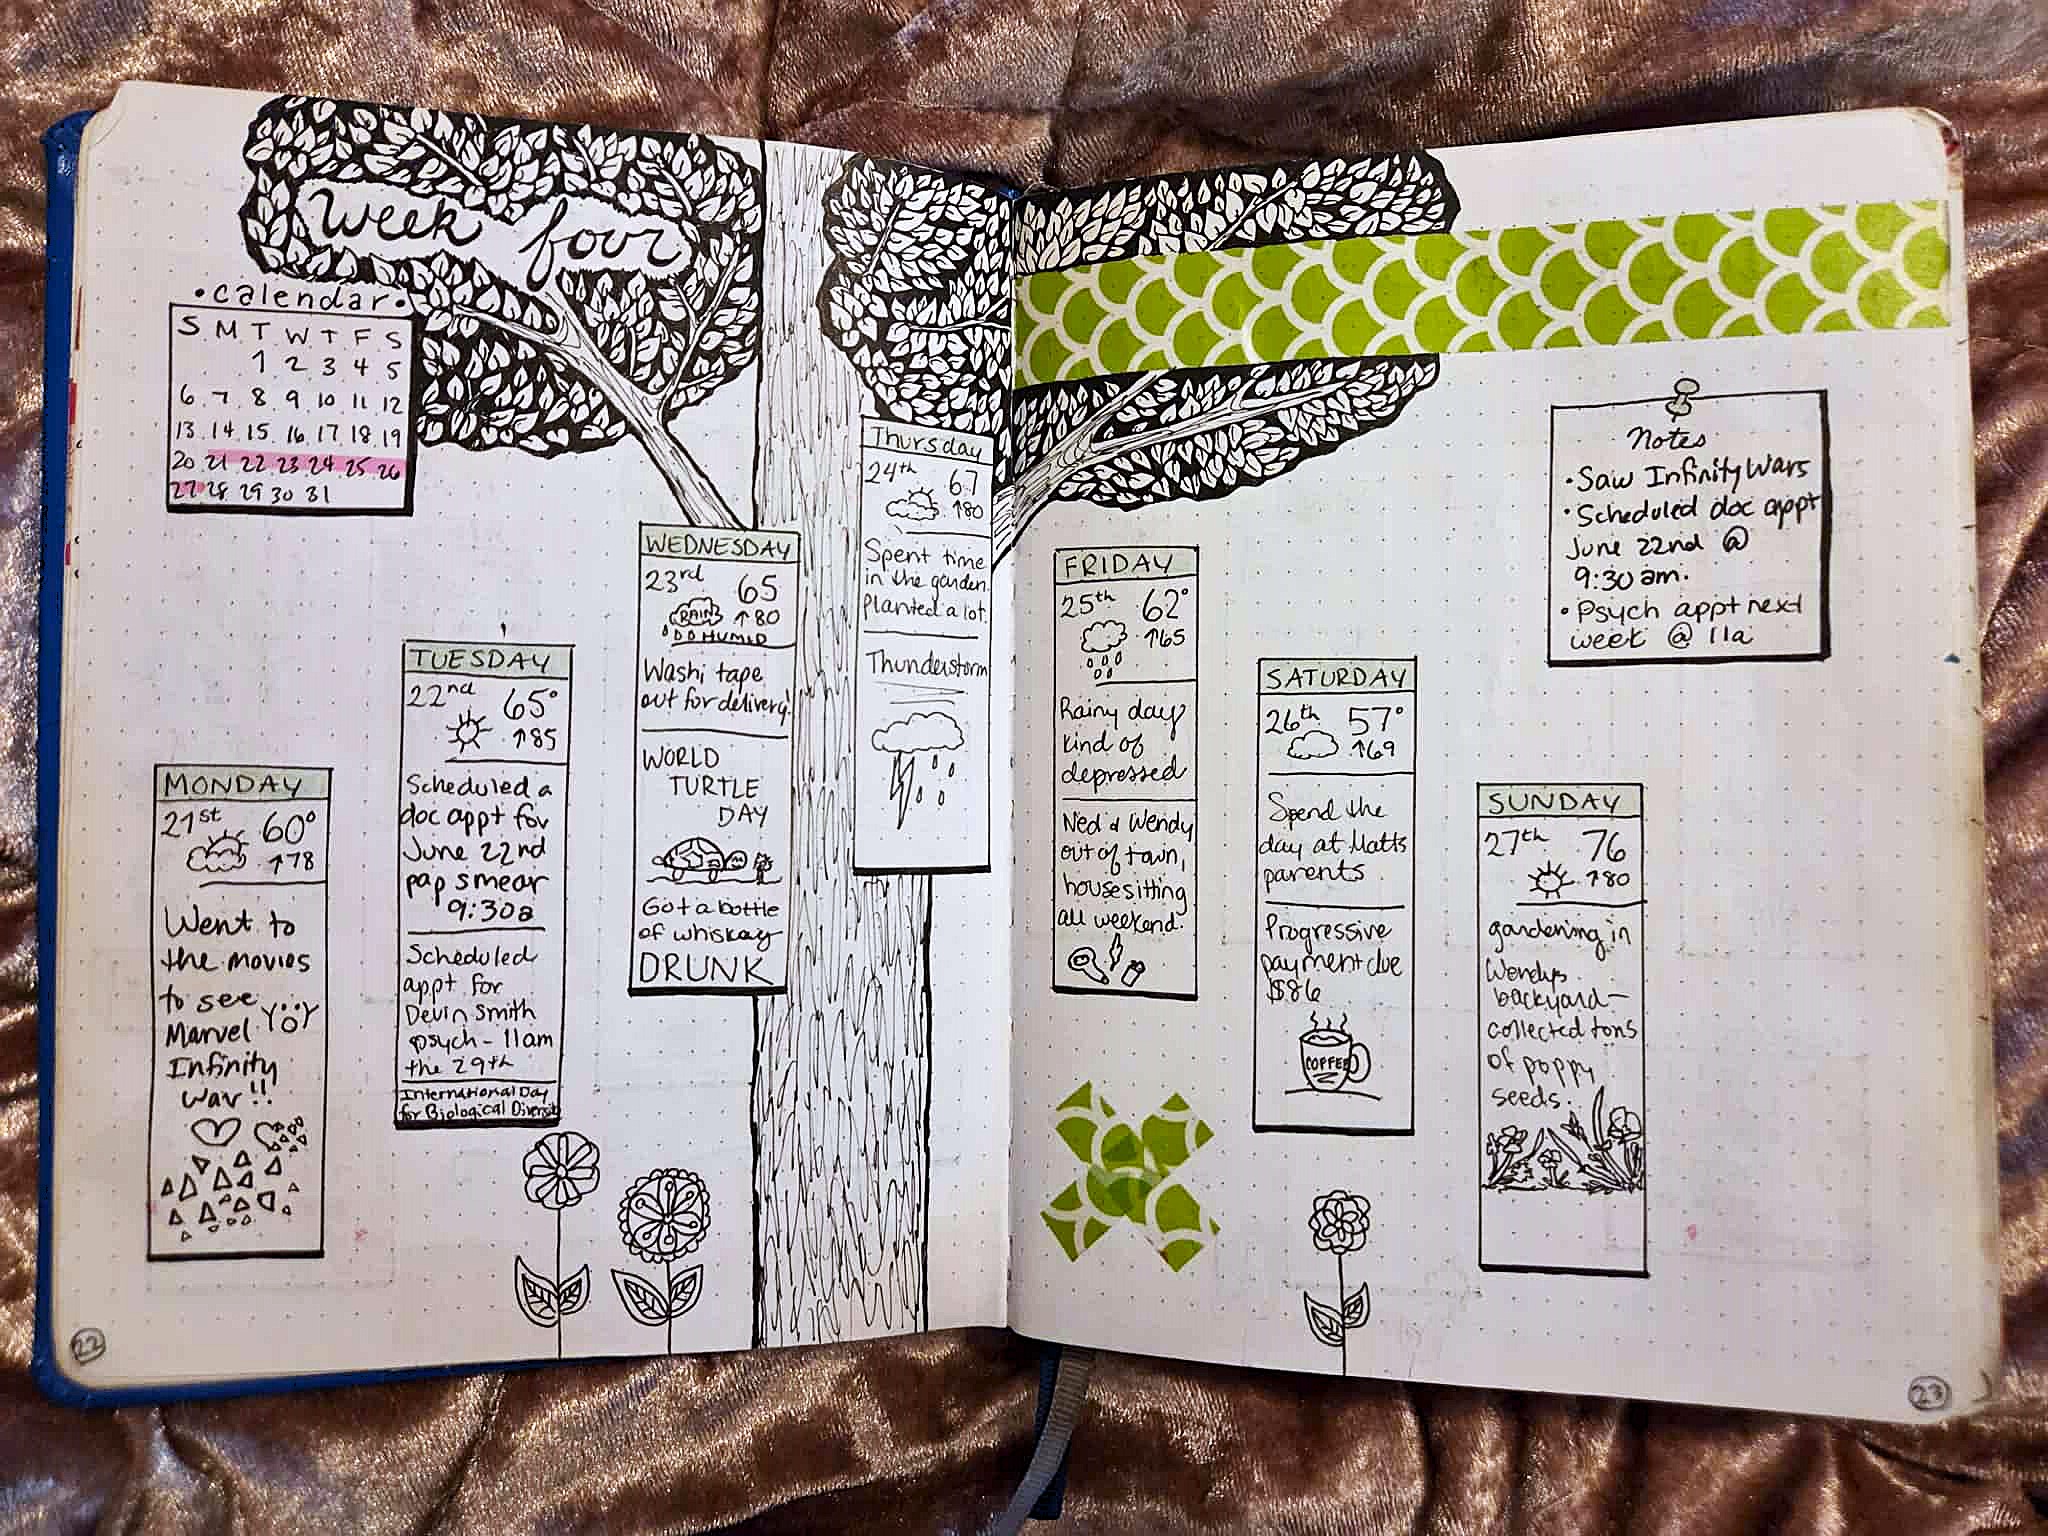 Week four
•calendar•
S M T W T F S
1 2 3 4 5
6 7 8 9 10 11 12
13 14 15 16 17 18 19
20 21 22 23 24 25 26
27 28 29 30 31
MONDAY
21st 60°
↑78
Went to
the movies
to see
Marvel
Infinity
War!!
TUESDAY
22nd 65°
↑85
Scheduled a
doc appt for
June 22nd
pap smear
9:30a
Scheduled
appt for
Devin Smith
psych - 11am
the 29th
International Day
for Biological Diversity
WEDNESDAY
23rd 65
RAIN ↑80
HUMID
Washi tape
out for delivery!
WORLD
TURTLE
DAY
Got a bottle
of whiskey
DRUNK
Thursday
24th 67
↑80
Spent time
in the garden.
Planted a lot.
Thunderstorm
FRIDAY
25th 62°
↑65
Rainy day
kind of
depressed
Ned & Wendy
out of town,
housesitting
all weekend.
SATURDAY
26th 57°
↑69
Spend the
day at Matts
parents
Progressive
payment due
$86
COFFEE
SUNDAY
27th 76
↑80
gardening in
Wendys
backyard-
collected tons
of poppy
seeds.
Notes
•Saw Infinity Wars
•Scheduled doc appt
June 22nd @
9:30am.
•Psych appt next
week @ 11a
22
23